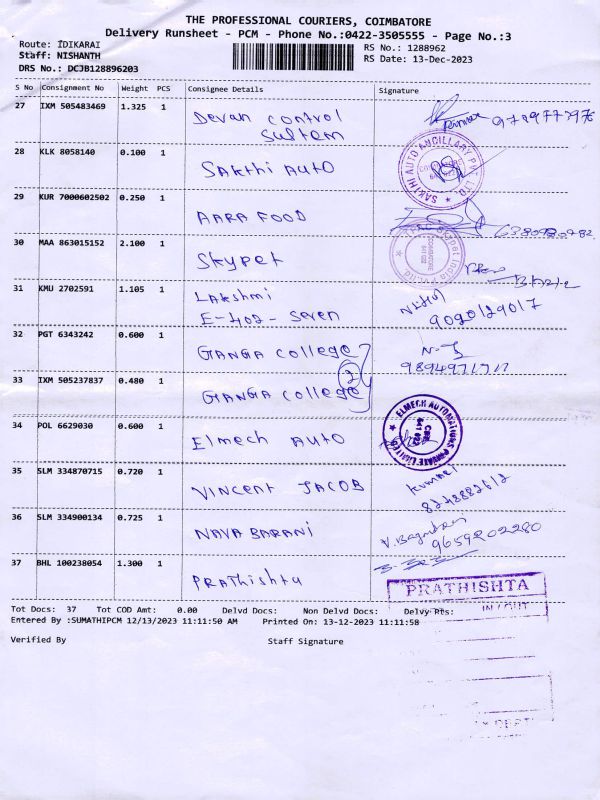 THE PROFESSIONAL COURIERS, COIMBATORE
Delivery Runsheet - PCM - Phone No.:0422-3505555 - Page No.:3
Route: IDIKARAI RS No.: 1288962
Staff: NISHANTH RS Date: 13-Dec-2023
DRS No.: DCJB128896203
S No Consignment No Weight PCS Consignee Details Signature
27 IXM 505483469 1.325 1 Devan control
Sultem
28 KLK 8058140 0.100 1 Sakthi Auto
SAKTHI AUTO ANCILLARY PV LTD.
29 KUR 7000602502 0.250 1 AARA FOOD
30 MAA 863015152 2.100 1 Skypet
COIMBATORE
31 KMU 2702591 1.105 1 Lakshmi
E-402 - Seven 9020129017
32 PGT 6343242 0.600 1 GANGA college
2
33 IXM 505237837 0.480 1 GANGA college
34 POL 6629030 0.600 1 Elmech Auto
ELMECH AUTOMATIONS PRIVATE LIMITED
CBE
35 SLM 334870715 0.720 1 VINCENT JACOB Kumar
8248882612
36 SLM 334900134 0.725 1 NAVA BARANI
9659202280
37 BHL 100238054 1.300 1 Prathishta
PRATHISHTA
IN / OUT
Tot Docs: 37 Tot COD Amt: 0.00 Delvd Docs: Non Delvd Docs: Delvy Pts:
Entered By :SUMATHIPCM 12/13/2023 11:11:50 AM Printed On: 13-12-2023 11:11:58
Verified By Staff Signature